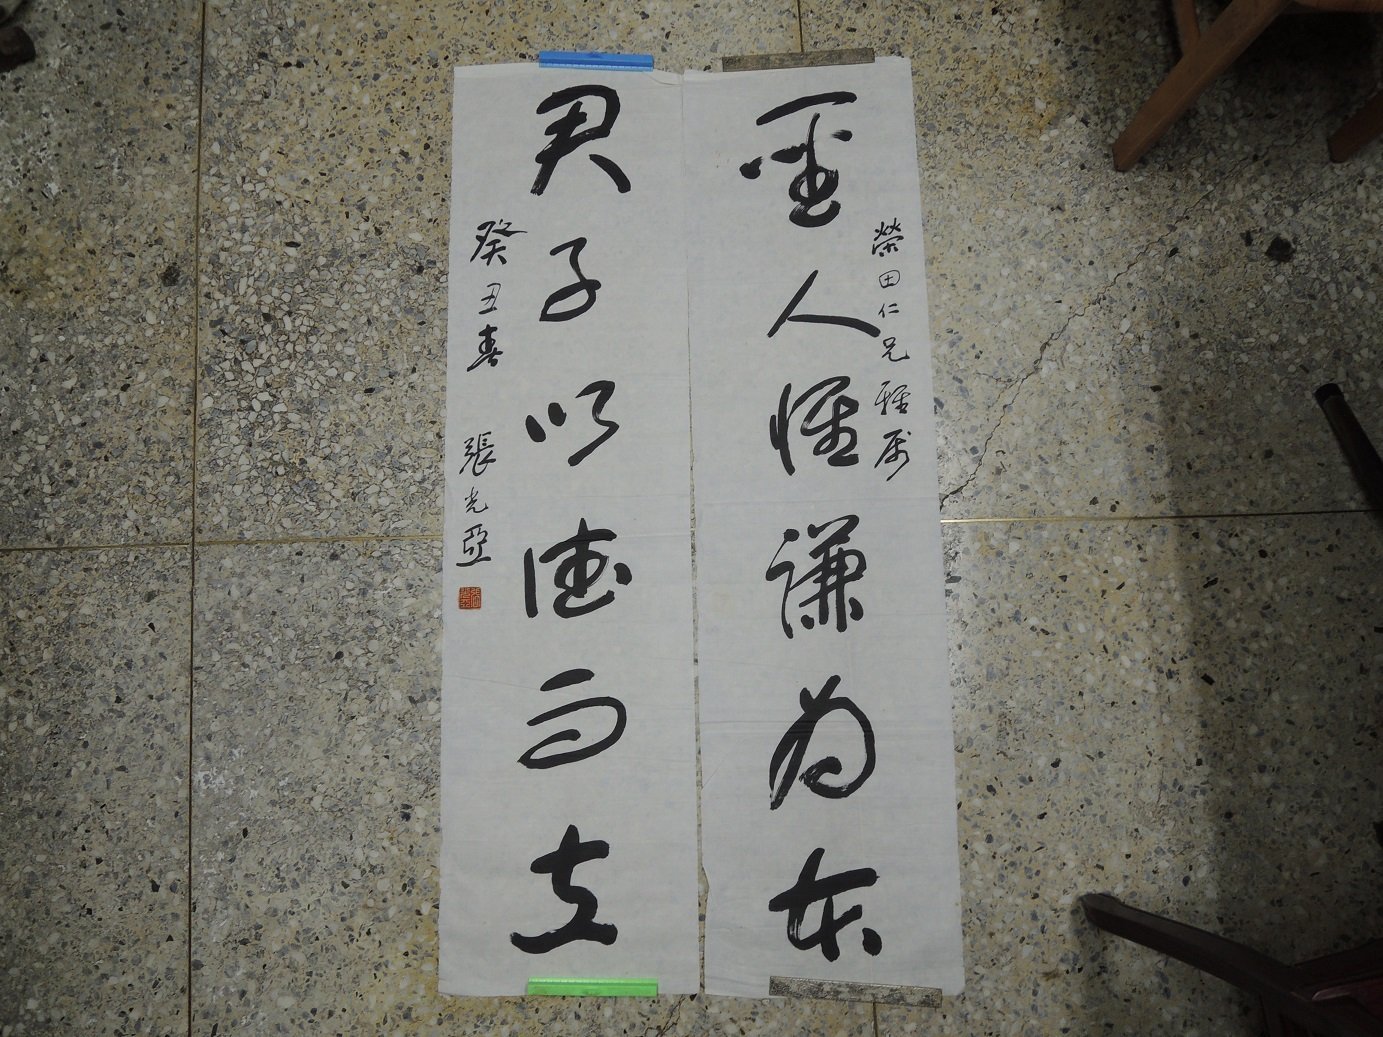 榮田仁兄雅屬
聖人惟謙為本
君子以德而立
癸丑春 張光亞